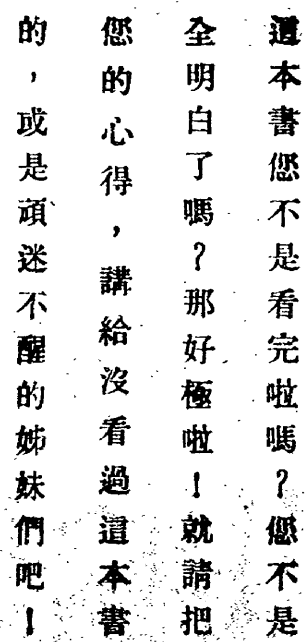 這本書您不是看完啦嗎？您不是
全明白了嗎？那好極啦！就請把
您的心得，講給沒看過這本書
的，或是頑迷不醒的姊妹們吧！